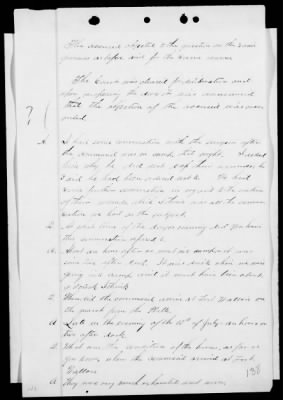 The accused objected to the question on the same
grounds as before and for the same reason
The Court was cleared for deliberation and
upon reopening the doors it was announced
that the objection of the accused was over
ruled
? (
A. I had some conversation with the surgeon after
the command was in camp that night. I asked
him why he did not stop there
he said he had been ordered not to. We had
some further conversation in regard to the nature
of their wounds which I think was all the conver
sation we had on the subject.
Q. At what time of the day or evening did you have
this conversation
A. About an hour after we went into camp it was
some time after dark. It was dusk when we were
going into camp and it must have been about
o'clock I think
Q. When did the command arrive at Fort Wallace on
the march from the Platte.
A Late in the evening of the 13th of July an hour or
two after dark.
Q What was the condition of the horses, as far as
you know, when the command arrived at Fort
Wallace
A They were very much exhausted and worn.
138